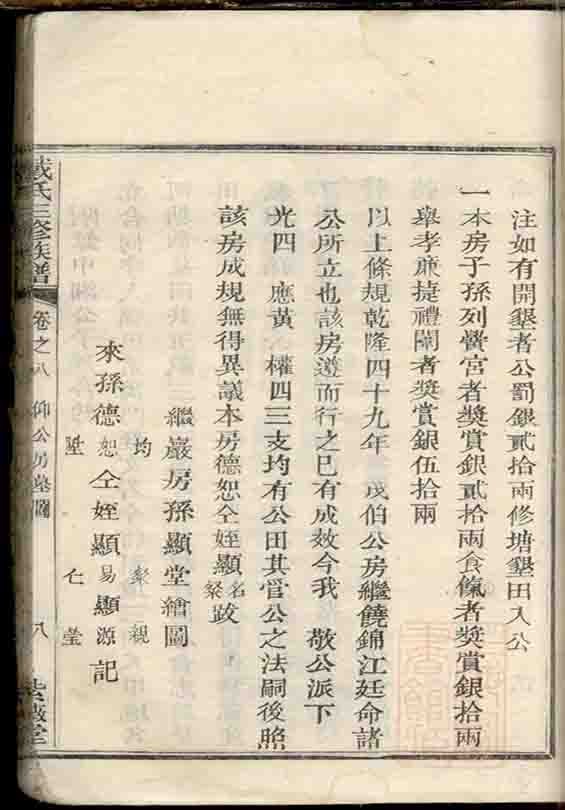 注如有開墾者公罰銀貳拾兩修塘墾田入公
一本房子孫列黌宮者獎賞銀貳拾兩食餼者獎賞銀拾兩
舉孝廉捷禮闈者獎賞銀伍拾兩
以上條規乾隆四十九年 茂伯公房繼饒錦江廷命諸
公所立也該房遵而行之已有成效今我 敬公派下
光四 應黃 權四三支均有公田其管公之法嗣後照
該房成規無得異議本房德恕仝姪顯名粲跋
繼巖房孫顯堂繪圖
均 粲 親
來孫德恕仝姪顯易顯源記
陞 仁 瑩
戴氏三修族譜 卷之八 仰公房墓圖 八 紫薇堂